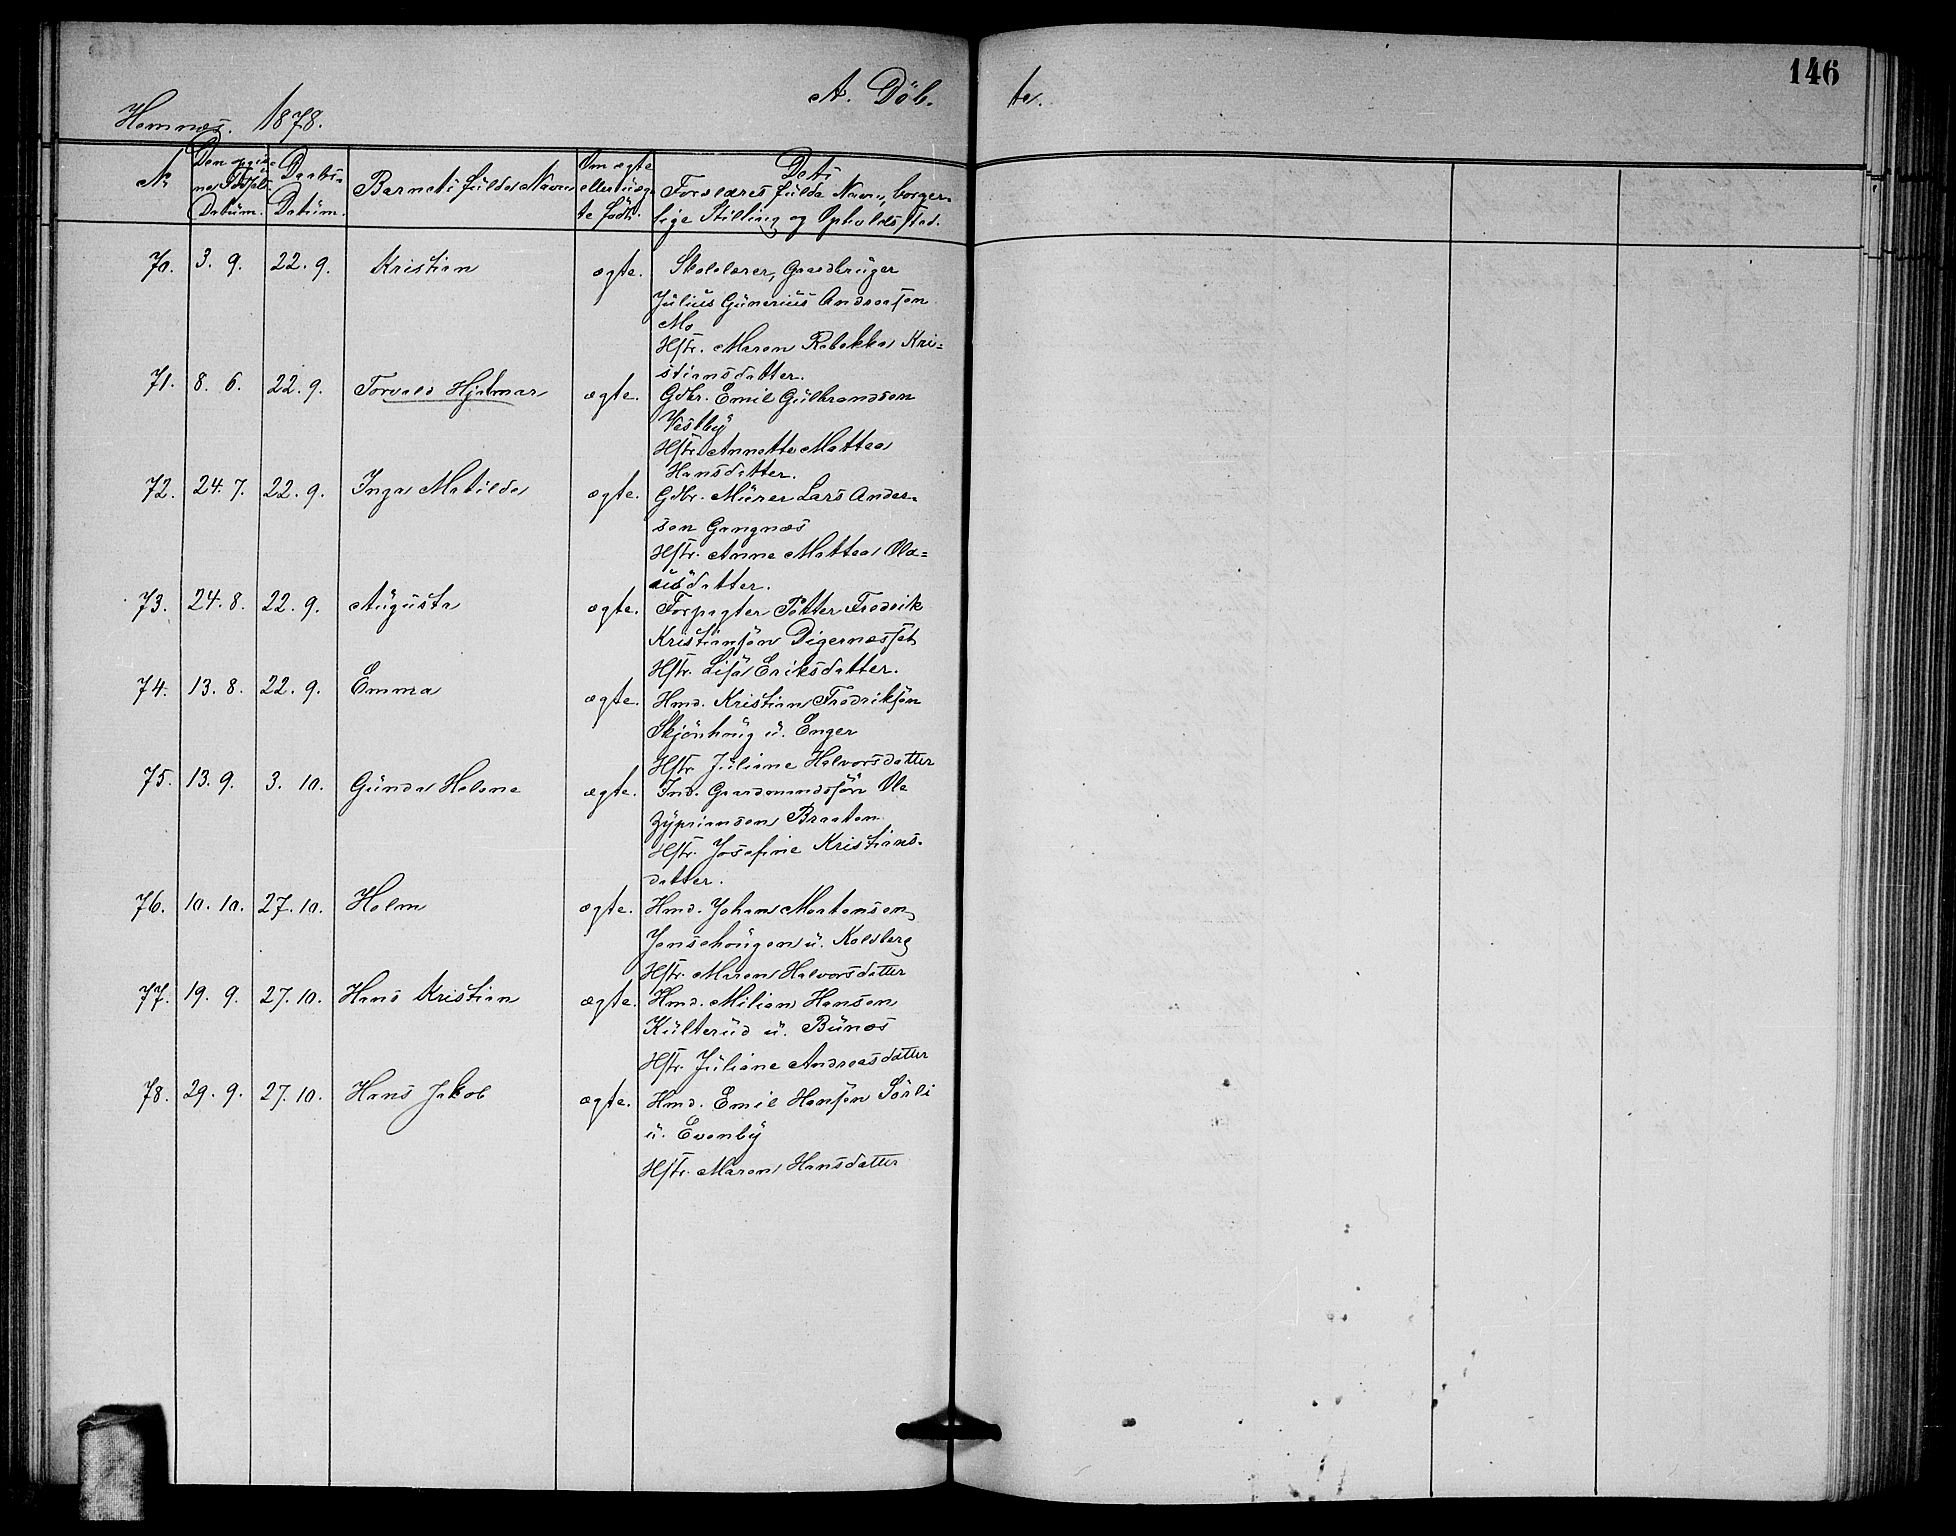 146
A. Döb- te.
Hemnæs. 1878.
No
Den opgiv- ne Fødsels- Datum.
Daabs- Datum.
Barnets fulde Navn
Om ægte eller uæg- te født.
Dets Forældres fulde Navn, borger- lige Stilling og Opholdssted.
70. 3. 9. 22. 9. Kristian ægte. Skolelærer, Gaardbruger
Julius Gunerius Andreasen
Mo
Hstr. Maren Rebekka Kri=
stiansdatter.
71. 8. 6. 22. 9. Torvald Hjalmar ægte. Gdbr. Emil Gulbrandsen
Vestby
Hstr. Annette Mattea
Hansdatter.
72. 24. 7. 22. 9. Inga Matilde ægte. Gdbr. Murer Lars Ander-
sen Gangnæs
Hstr. Anne Mattea Ola=
ausdatter.
73. 24. 8. 22. 9. Augusta ægte. Forpagter Petter Fredrik
Kristiansen Digernæsset
Hstr. Lisa Eriksdatter.
74. 13. 8. 22. 9. Emma ægte. Hmd. Kristian Fredriksen
Skjönhoug u. Enger
Hstr. Juliane Halvorsdatter
75. 13. 9. 3. 10. Gunda Helene ægte. Ind. Gaardmandssön Ole
Zyprianson Braaten
Hstr. Josefine Kristians-
datter.
76. 10. 10. 27. 10. Holm ægte. Hmd. Johan Mortensen
Jensehougen u. Kolsberg
Hstr. Maren Halvorsdatter
77. 19. 9. 27. 10. Hans Kristian ægte. Hmd. Milian Hansen
Kulterud u. Bunes
Hstr. Juliane Andreasdatter
78. 29. 9. 27. 10. Hans Jakob ægte. Hmd. Emil Hansen Sörli
u. Evenby
Hstr. Maren Hansdatter